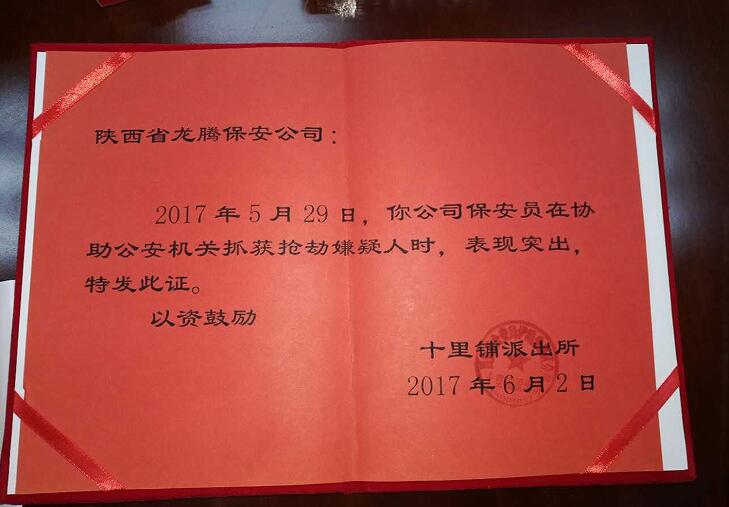 陕西省龙腾保安公司：
2017年5月29日，你公司保安员在协
助公安机关抓获抢劫嫌疑人时，表现突出，
特发此证。
以资鼓励
十里铺派出所
2017年6月2日